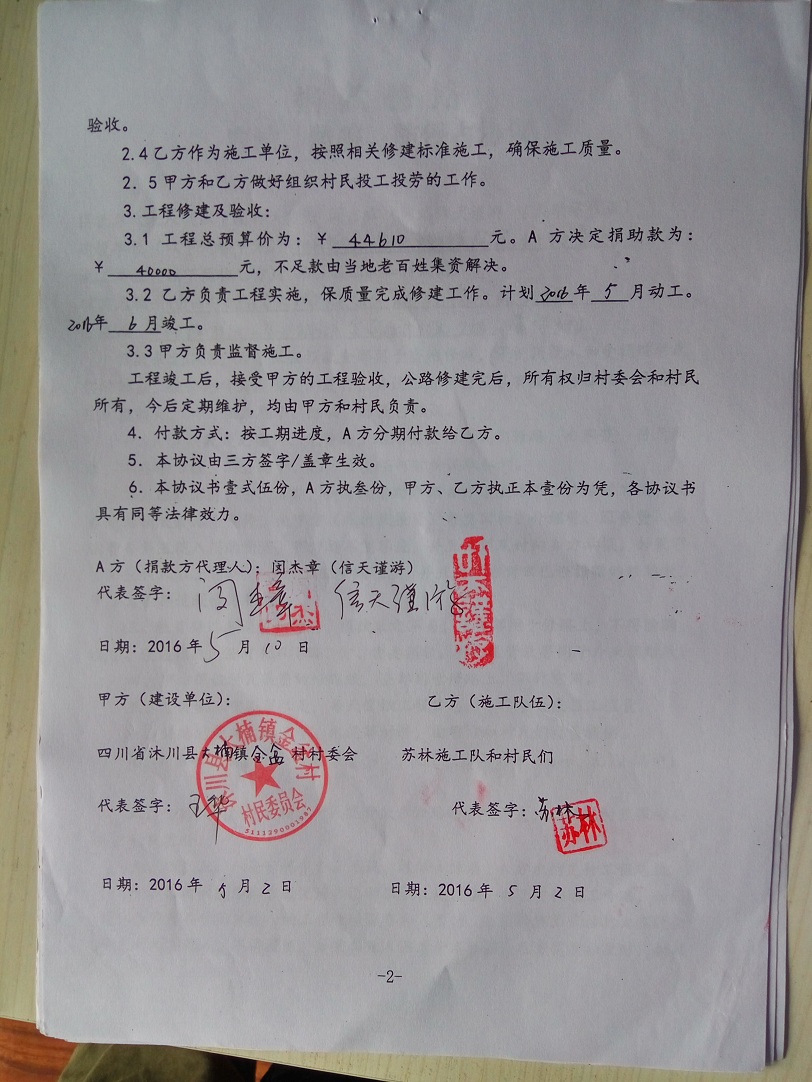 验收。
2.4乙方作为施工单位，按照相关修建标准施工，确保施工质量。
2．5甲方和乙方做好组织村民投工投劳的工作。
3.工程修建及验收：
3.1 工程总预算价为：￥ 44610 元。A 方决定捐助款为：
￥ 40000 元，不足款由当地老百姓集资解决。
3.2 乙方负责工程实施，保质量完成修建工作。计划2016年 5 月动工。
2016年 6 月竣工。
3.3甲方负责监督施工。
工程竣工后，接受甲方的工程验收，公路修建完后，所有权归村委会和村民
所有，今后定期维护，均由甲方和村民负责。
4．付款方式：按工期进度，A方分期付款给乙方。
5．本协议由三方签字/盖章生效。
6．本协议书壹式伍份，A方执叁份，甲方、乙方执正本壹份为凭，各协议书
具有同等法律效力。
A方（捐款方代理人）：闵杰章（信天谨游）
代表签字： 闵杰章 信天谨游
日期：2016年5月10日
甲方（建设单位）： 乙方（施工队伍）：
四川省沐川县大楠镇金盆村村委会 苏林施工队和村民们
沐川县大楠镇金盆村
村民委员会
5111290001987
代表签字： 王华 代表签字：苏林
苏林
日期：2016年 5月2日 日期：2016年 5月2日
-2-